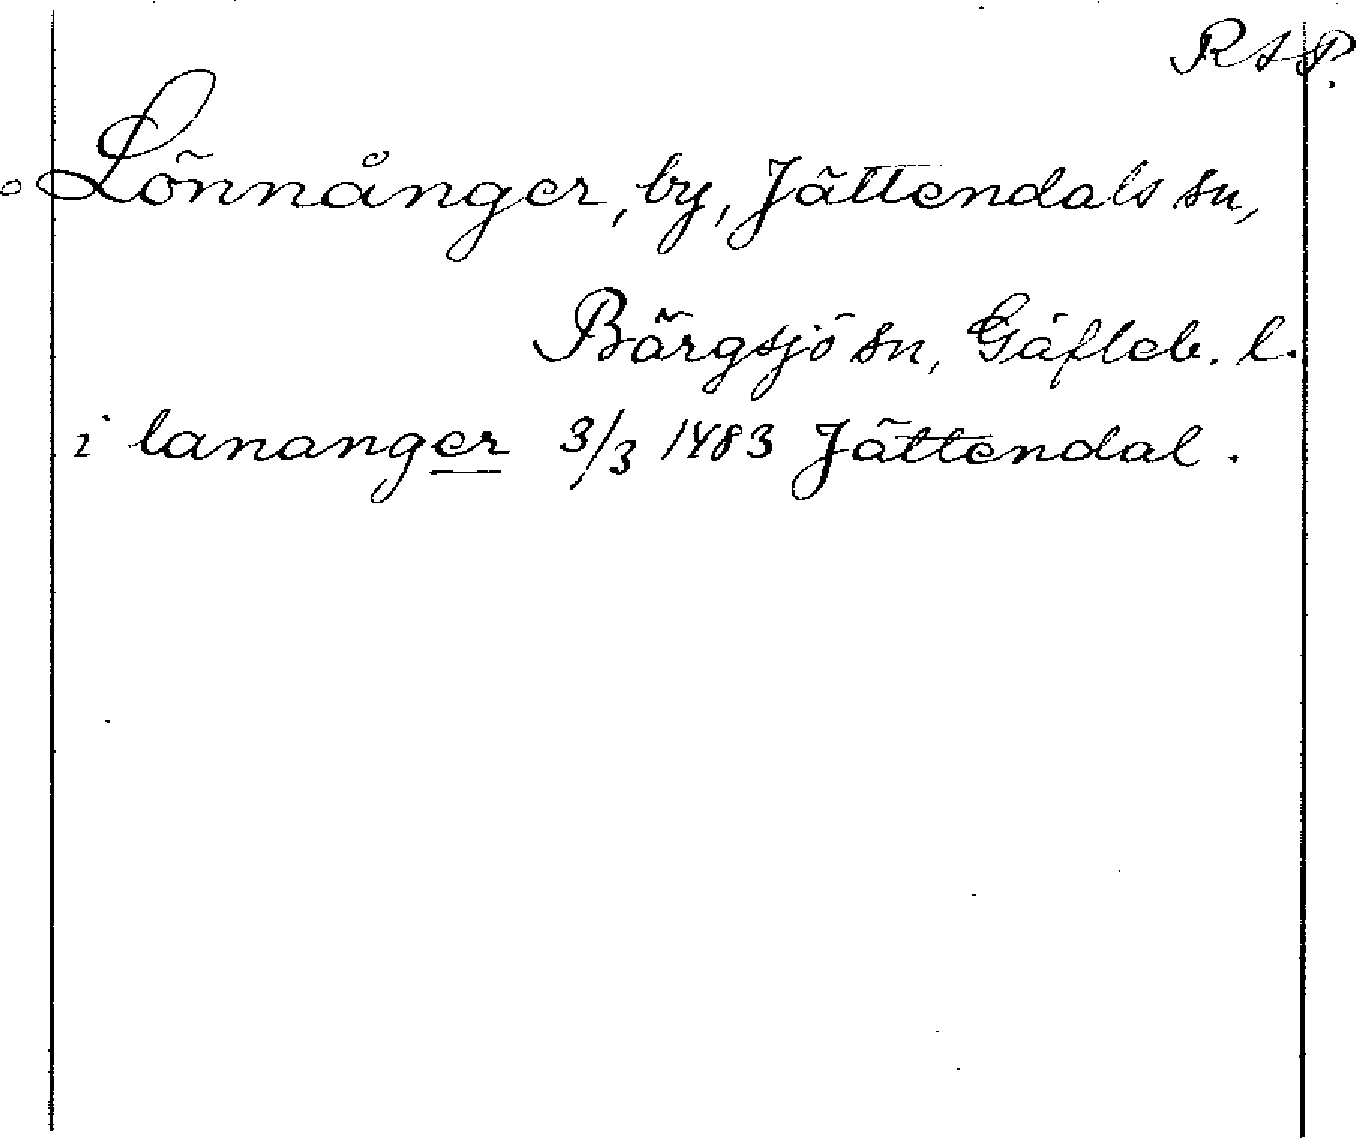 RAP.
Lönnånger, by, Jättendals sn,
Bärgsjö sn, Gäfleb. l.
i lananger 3/3 1483 Jättendal.